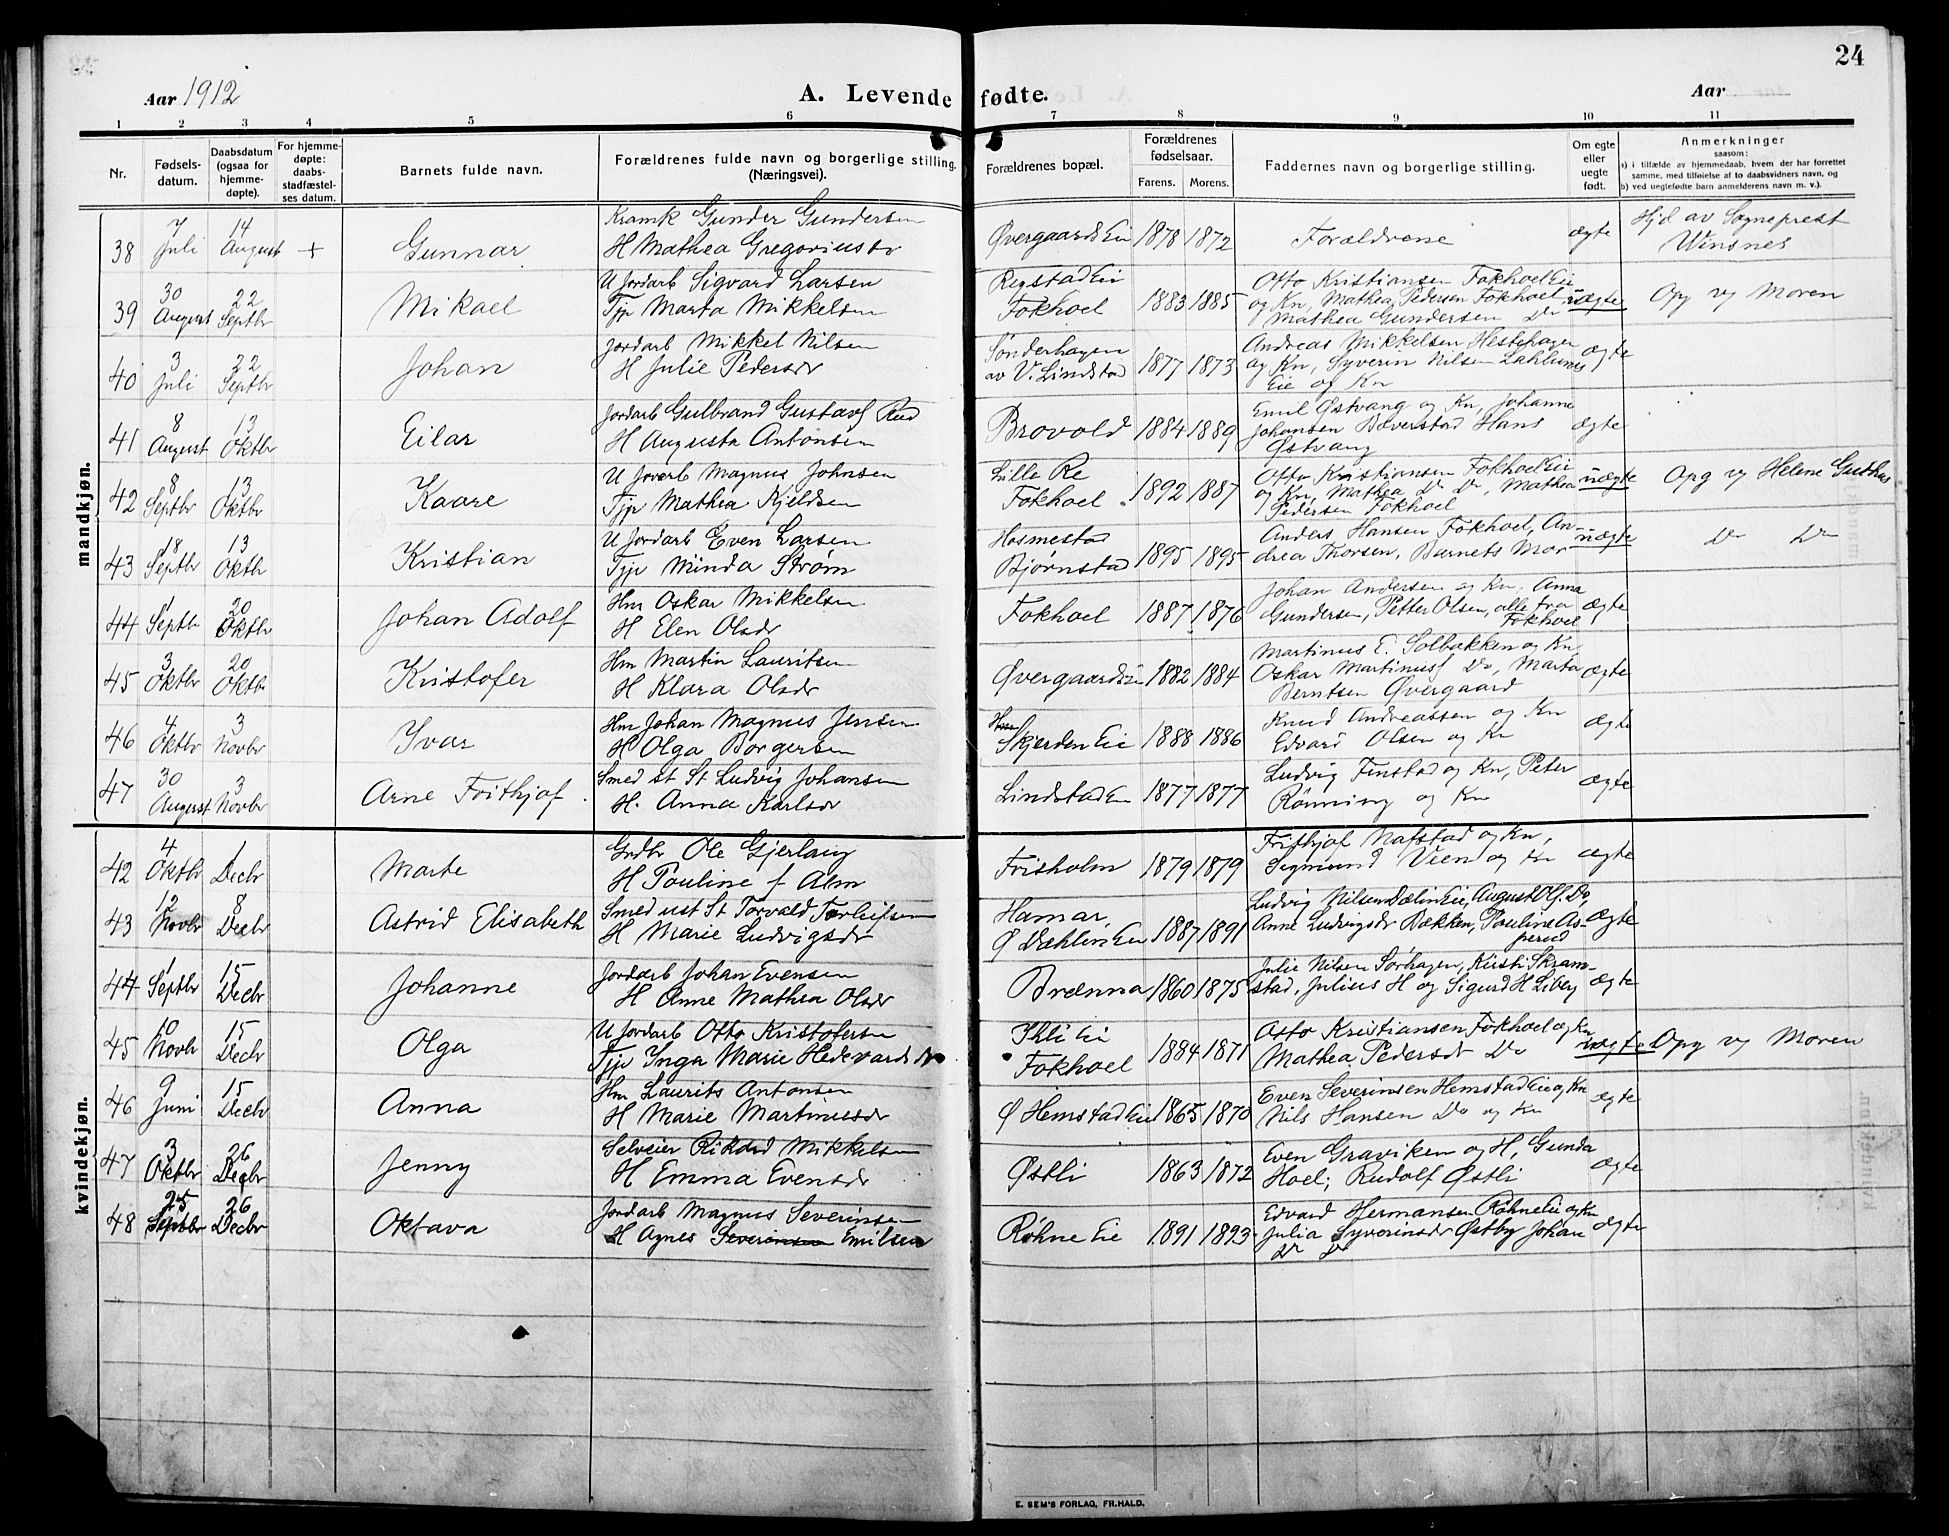 24
Aar 1912
A. Levende fødte.
Aar
1 2 3 4 5 6 7 8 9 10 11
Nr.
Fødsels-
datum.
Daabsdatum
(ogsaa for
hjemme-
døpte).
For hjemme-
døpte:
daabs-
stadfæstel-
ses datum.
Barnets fulde navn.
Forældrenes fulde navn og borgerlige stilling.
(Næringsvei).
Forældrenes bopæl.
Forældrenes
fødselsaar.
Farens. Morens.
Faddernes navn og borgerlige stilling.
Om egte
eller
uegte
født.
Anmerkninger
saasom:
a) i tilfælde av hjemmedaab, hvem der har forrettet
samme, med tilføielse af to daabsvidners navn, og
b) ved uegtefødte barn anmelderens navn m. v.).
mandkjøn.
38 7 Juli 14 August + Gunnar
Kramk Gunder Gundersen
H Mathea Gregoriusdr
Øvergaards Eie 1878 1872 Forældrene ægte
Hjd av Sogneprest
Winsnes
39 30 August 22 Septbr Mikael
U Jordarb Sigvard Larsen
Tjp Marta Mikkelsen
Regstad Eie
Fokhoel 1883 1885
Otto Kristiansen Fokhoel Eie
og Kn, Mathea Pedersen Fokhoel
Mathea Gundersen Do
uægte Opg v Moren
40 3 Juli 22 Septbr Johan
Jordarb Mikkel Nilsen
H Julie Pedersdr
Sønderhagen
av V. Lindstad 1877 1873
Andreas Mikkelsen Hestehagen
og Kn, Syverin Nilsen
Eie og Kn
ægte
41 8 August 13 Oktbr Eilar
Jordarb Gulbrand Gustavs Rud
H Augusta Antonsen
Brovold 1884 1889
Emil Østvang og Kn, Johanne
Johansen Bæverstad Hans
Østvang
ægte
42 8 Septbr 13 Oktbr Kaare
U Jordarb Magnus Johnsen
Tjp Mathea Kjeldsen
Lille Re
Fokhoel 1892 1887
Otto Kristiansen Fokhoel Eie
og Kn, Mathea Do Do, Mathea
Pedersen Fokhoel
uægte Opg v Helene
43 18 Septbr 13 Oktbr Kristian
U Jordarb Even Larsen
Tjp Minda Strøm
Hosmestad
Bjørnstad 1895 1895
Anders Hansen Fokhoel, An-
drea Thorsen, Barnets Mor
uægte Do Do
44 1 Septbr 20 Oktbr Johan Adolf
Hm Oskar Mikkelsen
H Elen Olsdr
Fokhoel 1887 1876
Johan Andersen og Kn, Anna
Gundersen, Petter Olsen, alle fra
Fokhoel
ægte
45 3 Oktbr 20 Oktbr Kristofer
Hm Martin Lauritsen
H Klara Olsdr
Øvergaardsie 1882 1884
Martinus E. Solbakken og Kn,
Oskar Martinus Do, Marta
Berntsen Øvergaard
ægte
46 4 Oktbr 3 Novbr Ivar
Hm Johan Magnus Jensen
H Olga Borgersen
Skjerden Eie 1888 1886
Knud Andreassen og Kn
Edvard Olsen og Kn
ægte
47 30 August 3 Novbr Arne Frithjof
Smed st St Ludvig Johansen
H. Anna Karlsdr
Lindstad Eie 1877 1877
Ludvig Finstad og Kn, Peter
Rønning og Kn
ægte
kvindekjøn.
42 4 Oktbr 1 Decbr Marte
Grdbr Ole Gjerlaug
H Pouline f Alm
Frisholm 1879 1879
Frithjof Nafstad og Kn,
Sigmund Veen og Kn
ægte
43 12 Novbr 8 Decbr Astrid Elisabeth
Smed ust St Torvald Torleifsen
H Marie Ludvigsdr
Hamar,
Ø Dæhlin Eie 1887 1891
Ludvig Nilsen Dælin Eie, August Ols. Do,
Anne Ludvigsdr Bakken, Pauline As-
perud
ægte
44 1 Septbr 15 Decbr Johanne
Jordarb Johan Evensen
H Anne Mathea Olsdr
Brænna 1860 1875
Julie Nilsen Sørhagen, Kirsti Skram-
stad, Julius H og Sigurd H Liberg
ægte
45 10 Novbr 15 Decbr Olga
U Jordarb Otto Kristofersen
Tjp Inga Marie Hedevardsdr
Ihli Eie
Fokhoel 1884 1871
Otto Kristiansen Fokhoel og Kn
Mathea Pedersdr Do
uægte Opg v Moren
46 9 Juni 15 Decbr Anna
Hm Laurits Antonsen
H Marie Martinusdr
Ø Hemstad Eie 1865 1870
Even Severinsen Hemstad Eie og Kn
Nils Hansen Do og Kn
ægte
47 3 Oktbr 26 Decbr Jenny
Selveier Rikard Mikkelsen
H Emma Evensdr
Østli 1863 1872
Even Graviken og H, Gunda
Hoel; Rudolf Østli
ægte
48 25 Septbr 26 Decbr Oktava
Jordarb Magnus Severinsen
H Agnes Severinsen Emilsen
Røhne Eie 1891 1893
Edvard Hermansen Røhne Eie og Kn
Julia Syverinsdr Østby Johan
Do Do
ægte
E. SEM'S FORLAG, FR.HALD.